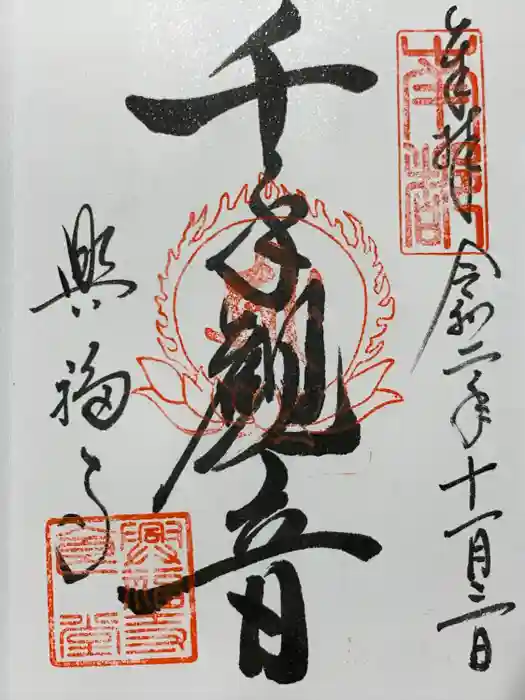 奉拝
令和二年十一月三日
千手観音
興福寺
興福寺